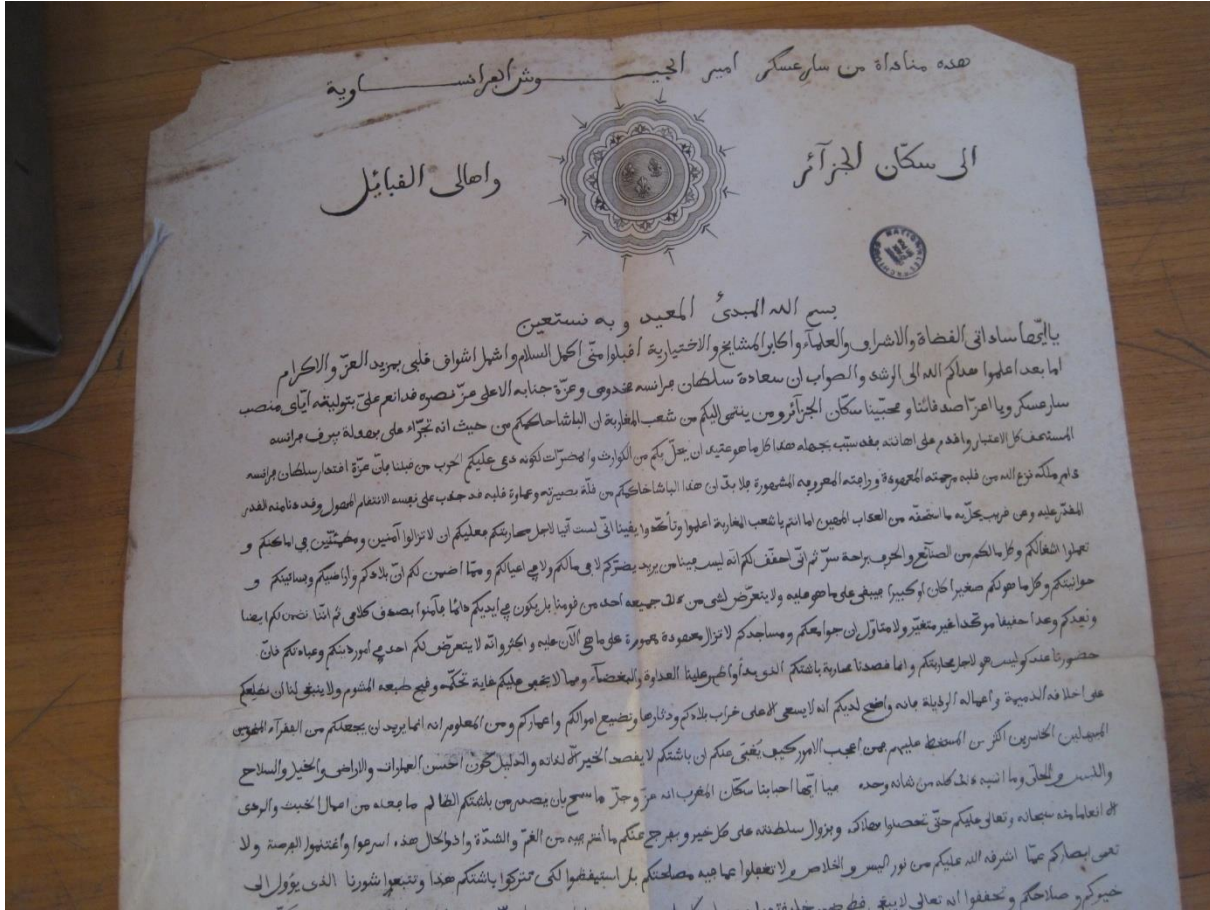 هذه مناداة من سارعسكر امير الجيــوش الفرانســاوية
الى سكّان الجزآئر واهالى القبائل
بسم الله المبدئ المعيد وبه نستعين
يا ايّها ساداتى القضاة والاشراف والعلمآء واكابر المشايخ والاختيارية اقبلوا منّى اكمل السلام واشمل اشواق قلبى بمزيد العزّ والاكرام
اما بعد اعلموا هداكم الله الى الرشد والصواب ان سعادة سلطان فرانسه مخدومى وعزّة جنابه الاعلى عزّ نصره قد انعم علىّ بتوليته ايّاى منصب
سارعسكر ويا اعزّ اصدقائنا ومحبّينا سكّان الجزآئر ومن ينتمى اليكم من شعب المغاربة ان الباشا حاكمكم من حيث انه تجرّاء على بهدلة بيرق فرانسه
المستحق كل الاعتبار واقدم على اهانته فقد سبّب بجهله هذا كل ما هو عتيد ان يحلّ بكم من الكوارث والمضرّات لكونه دعى عليكم الحرب من قبلنا فانّ عزّة اقتدار سلطان فرانسه
دام ملكه نزع الله من قلبه مرحمته المعهودة ورافته المعروفه المشهورة فلا بدّ ان هذا الباشا حاكمكم من قلّة بصيرته وعماوة قلبه قد جذب على نفسه الانتقام المهول وقد دنا منه القدر
المقدّر عليه وعن قريب يحلّ به ما استحقّه من العذاب المهين اما انتم يا شعب المغاربة اعلموا وتأكّدوا يقينا انّى لست آتيا لاجل محاربتكم فعليكم ان لا تزالوا آمنين ومطمئنّين فى اماكنكم و
تعملوا اشغالكم وكل ما لكم من الصنائع والحرف براحة سرّ ثم انّى احقّق لكم انه ليس فينا من يريد يضرّكم لا فى مالكم ولا فى اعيالكم وممّا اضمن لكم انّ بلادكم واراضيكم وبساتينكم و
حوانيتكم وكل ما هو لكم صغيرا كان او كبيرا فيبقى على ما هو عليه ولا يتعرّض لشى من ذلك جميعه احد من قومنا بل يكون فى ايديكم دائما فآمنوا بصدق كلامى ثم اننا نضمن لكم ايضا
ونعدكم وعدا حقيقا موكّدا غير متغيّر ولا متاوّل ان جوامعكم ومساجدكم لا تزال معهودة معمورة على ما هى الآن عليه واكثر وانه لا يتعرّض لكم احد فى امور دينكم وعبادتكم فانّ
حضورنا عندكم ليس هو لاجل محاربتكم وانما قصدنا محاربة باشتكم الذى بدأ واظهر علينا العداوة والبغضآء ومما لا يخفى عليكم غاية تحكّمه وقبح طبعه المشوم ولا ينبغى لنا ان نطلعكم
على اخلاقه الذميمة واعماله الرذيلة فانه واضح لديكم انه لا يسعى الّا على خراب بلادكم ودثارها وتضييع اموالكم واعماركم ومن المعلوم انه انما يريد ان يجعلكم من الفقرآء
المبهدلين الخاسرين اكثر من المسخط عليهم فمن اعجب الامور كيف يغبى عنكم ان باشتكم لا يقصد الخير الّا لذاته والدليل كون احسن العمارات والاراضى والخيل والسلاح
واللبس والحلى وما اشبه ذلك كله من شانه وحده فيا ايّها احبابنا سكّان المغرب انه عزّ وجلّ ما سمح بان يصدر من باشتكم الظالم ما فعله من اعمال الخبث والردى
الّا انعاما منه سبحانه وتعالى عليكم حتّى تحصلوا بهلاكه وبزوال سلطنته على كل خير ويفرج عنكم ما انتم فيه من الغمّ والشدّة واذ والحال هذه اسرعوا واغتنموا الفرصة ولا
تعمى ابصاركم عمّا اشرقه الله عليكم من نور اليسر والخلاص ولا تغفلوا عما فيه مصلحتكم بل استيقظوا لكى تتركوا باشتكم هذا وتتبعوا شورنا الذى يؤول الى
خيركم وصلاحكم وتحققوا انه تعالى لا يبغى قط